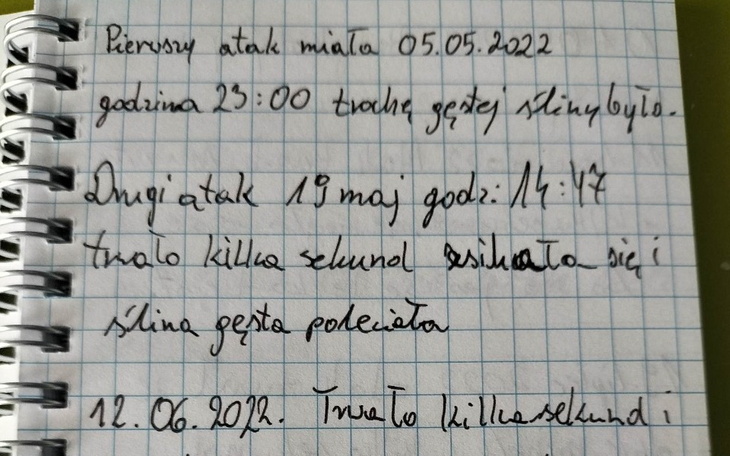 Pierwszy atak miała 05.05.2022
godzina 23:00 trochę gęstej śliny było.
Drugi atak 19 maj godz: 14:47
trwało kilka sekund zesikała się i
ślina gęsta poleciała
12.06.2022. Trwało kilka sekund i